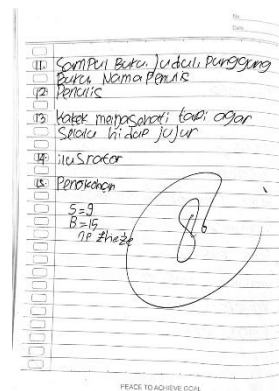 No.
Date.
11. Sampul Buku, Judul, Punggung
Buku Nama Penulis
12. Penulis
13 Kakek menasehati tapi agar
Selalu hidup jujur
14 ilusrator
15. Penokohan
S=9
B=15
86
PEACE TO ACHIEVE GOAL